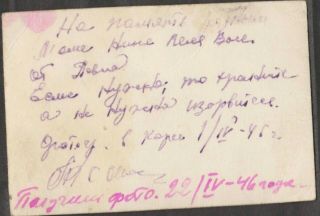 На память родным
Маме Нине Леле Вове
от Павла
Если нужна, то храните
а не нужна изорвите.
в Корее 1/IV-46 г.
Получили фото. 22/IV-46 года.